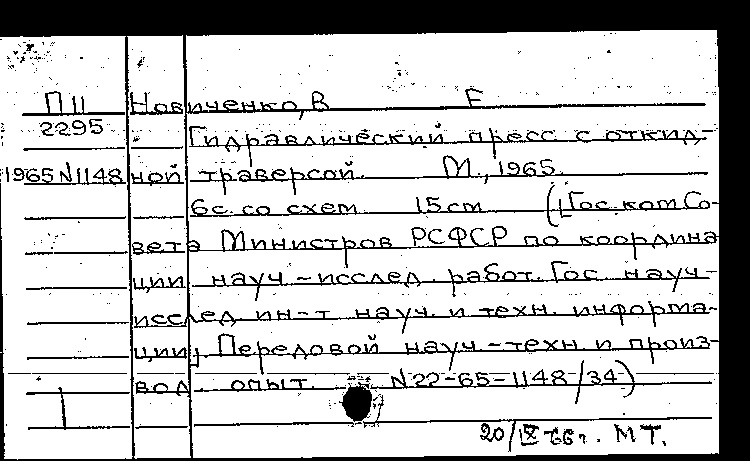 П11 Новиченко, В F
2295 Гидравлический пресс с откид-
1965 N1148 ной траверсой. М., 1965.
6с. со схем. 15 см. ([Гос. ком. Со-
вета Министров РСФСР по координа
ции науч-исслед. работ. Гос. науч-
исслед. ин-т науч. и техн. информа-
ции] Передовой науч.-техн. и произ-
вод. опыт. N22-65-1148/34)
20/IX 66 г. МТ.